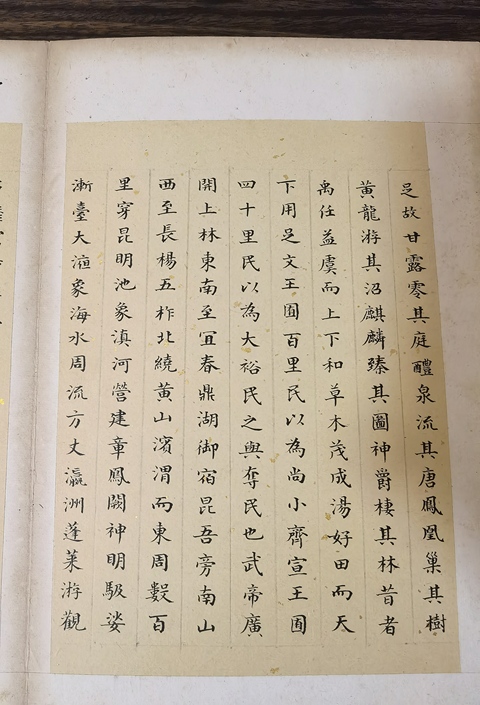 足故甘露零其庭醴泉流其唐鳳凰巢其樹
黃龍游其沼麒麟臻其圖神爵棲其林昔者
禹任益虞而上下和草木茂成湯好田而天
下用足文王囿百里民以為尚小齊宣王囿
四十里民以為大裕民之與奪民也武帝廣
開上林東南至宜春鼎湖御宿昆吾旁南山
西至長楊五柞北繞黃山濱渭而東周數百
里穿昆明池象滇河營建章鳳闕神明馺娑
漸臺大液象海水周流方丈瀛洲蓬萊游觀